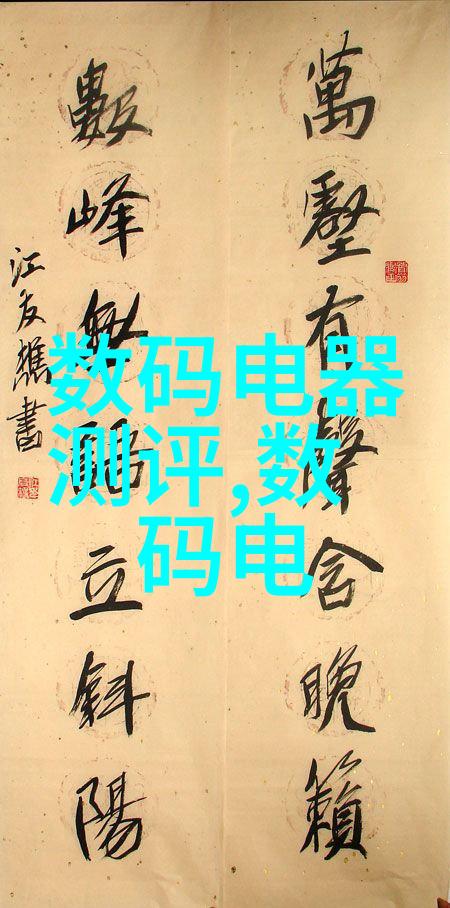 萬壑有聲含晚籟
數峰無語立斜陽
江友樵書
数码电器
测评,数
码电